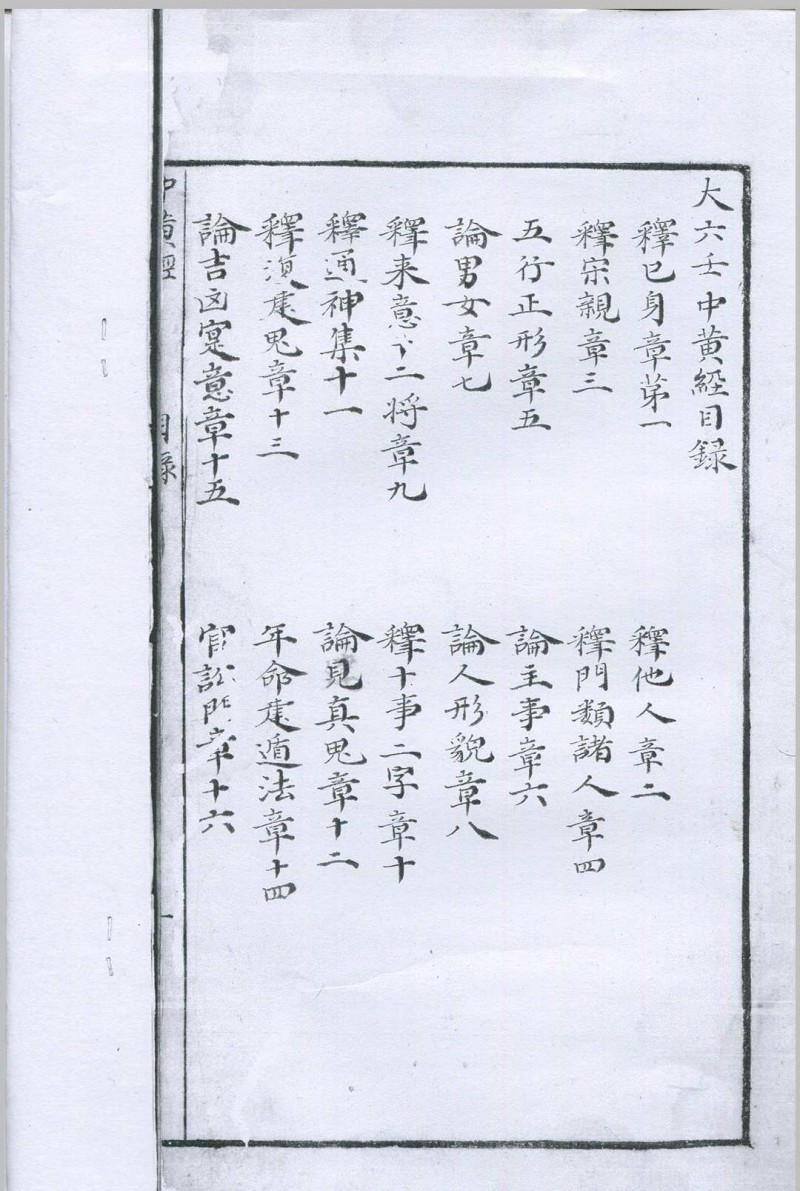 大六壬中黄經目録
釋己身章苐一
釋他人章二
釋宗親章三
釋門類諸人章四
五行正形章五
論主事章六
論男女章七
論人形貌章八
釋来意十二将章九
釋十事二字章十
釋通神集十一
論見真鬼章十二
釋須建鬼章十三
年命建遁法章十四
論吉凶寔意章十五
官訟門章十六
中黄經
目録
一